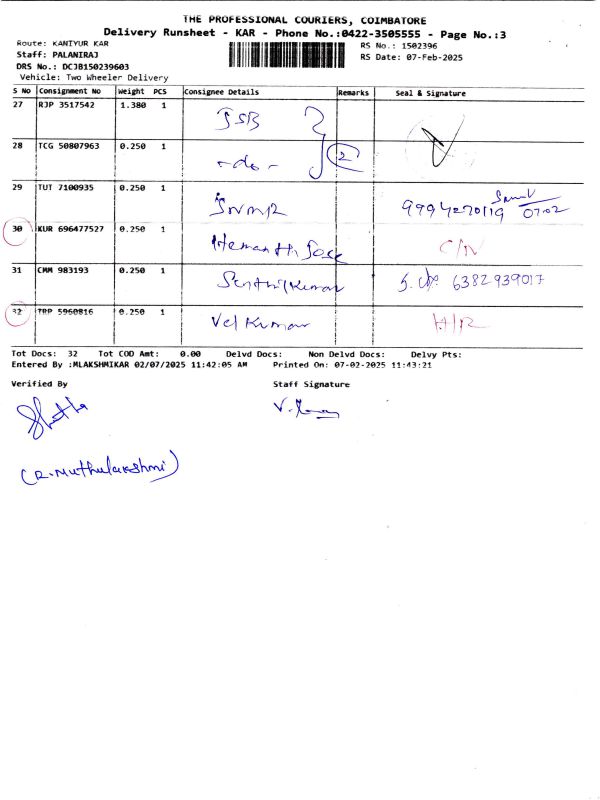 THE PROFESSIONAL COURIERS, COIMBATORE
Delivery Runsheet - KAR - Phone No.:0422-3505555 - Page No.:3
Route: KANIYUR KAR
RS No.: 1502396
Staff: PALANIRAJ
RS Date: 07-Feb-2025
DRS No.: DCJB150239603
Vehicle: Two Wheeler Delivery
S No Consignment No Weight PCS Consignee Details Remarks Seal & Signature
27 RJP 3517542 1.380 1 JSB
28 TCG 50807963 0.250 1 -do- 2
29 TUT 7100935 0.250 1 9994270119 07.02
30 KUR 696477527 0.250 1 Hemanth C/N
31 CMM 983193 0.250 1 Senthilkumar 6382939017
32 TRP 5960816 0.250 1 Vel Kumar H/R
Tot Docs: 32 Tot COD Amt: 0.00 Delvd Docs: Non Delvd Docs: Delvy Pts:
Entered By :MLAKSHMIKAR 02/07/2025 11:42:05 AM Printed On: 07-02-2025 11:43:21
Verified By Staff Signature
(R.Muthulakshmi)